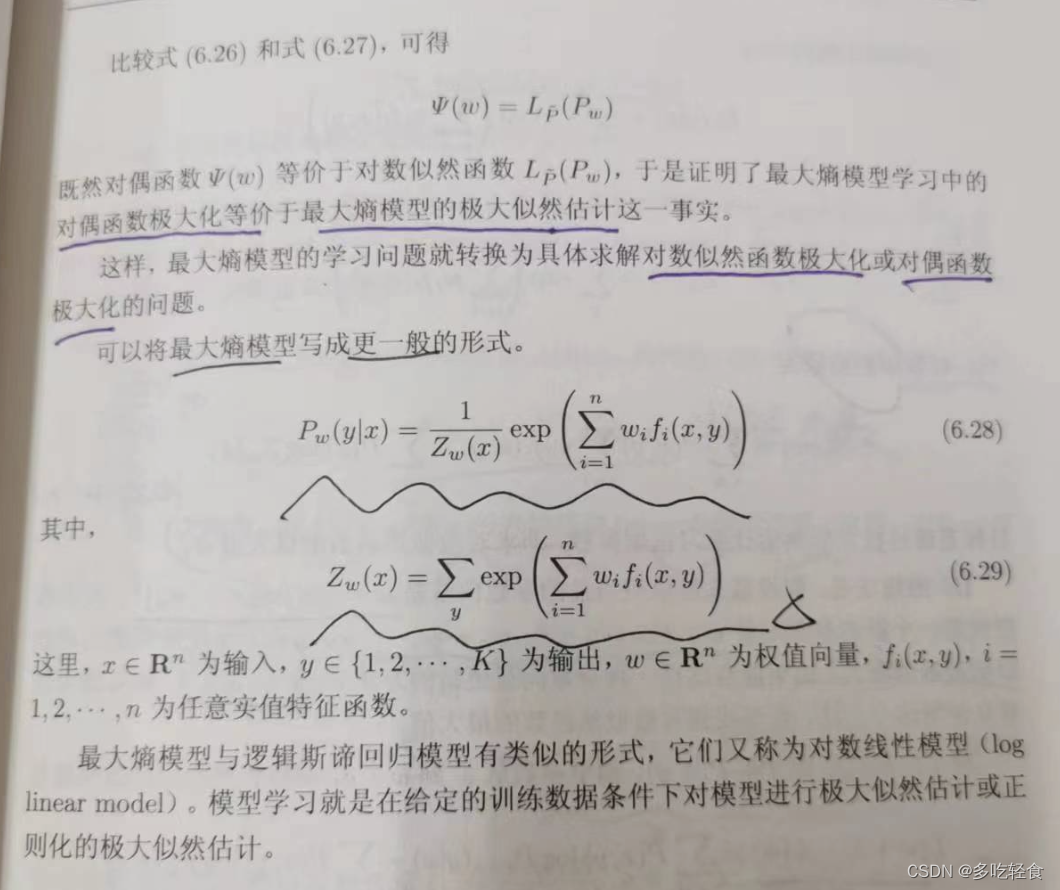 比较式 (6.26) 和式 (6.27)，可得
Ψ(w) = L_{P̃}(P_w)
既然对偶函数 Ψ(w) 等价于对数似然函数 L_{P̃}(P_w)，于是证明了最大熵模型学习中的
对偶函数极大化等价于最大熵模型的极大似然估计这一事实。
这样，最大熵模型的学习问题就转换为具体求解对数似然函数极大化或对偶函数
极大化的问题。
可以将最大熵模型写成更一般的形式。
P_w(y|x) = \frac{1}{Z_w(x)} \exp\left(\sum_{i=1}^{n} w_i f_i(x, y)\right) (6.28)
其中，
Z_w(x) = \sum_{y} \exp\left(\sum_{i=1}^{n} w_i f_i(x, y)\right) (6.29)
这里，x ∈ R^n 为输入，y ∈ {1, 2, ⋯, K} 为输出，w ∈ R^n 为权值向量，f_i(x, y)，i =
1, 2, ⋯, n 为任意实值特征函数。
最大熵模型与逻辑斯谛回归模型有类似的形式，它们又称为对数线性模型（log
linear model）。模型学习就是在给定的训练数据条件下对模型进行极大似然估计或正
则化的极大似然估计。
CSDN @多吃轻食